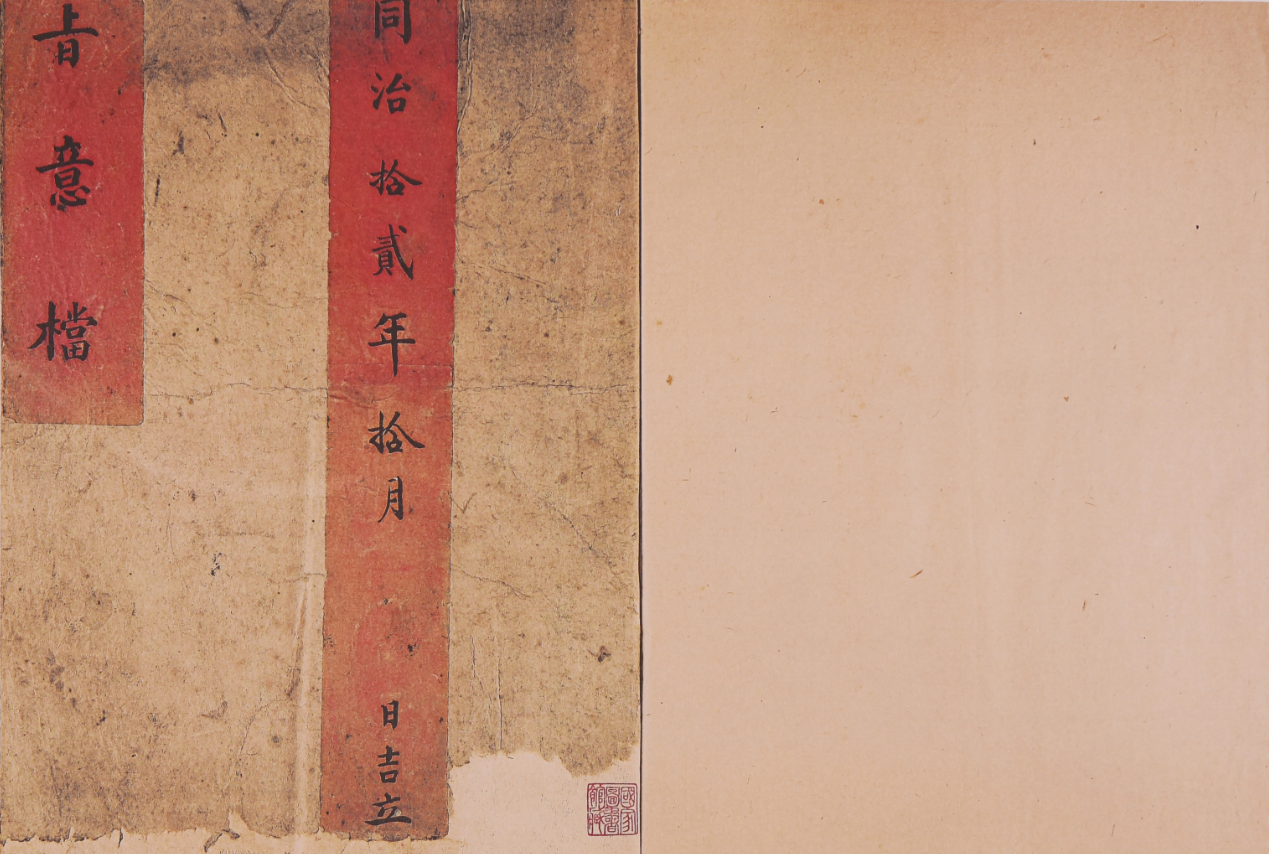 同治拾貳年拾月 日吉立
旨意檔
國家
圖書
館藏